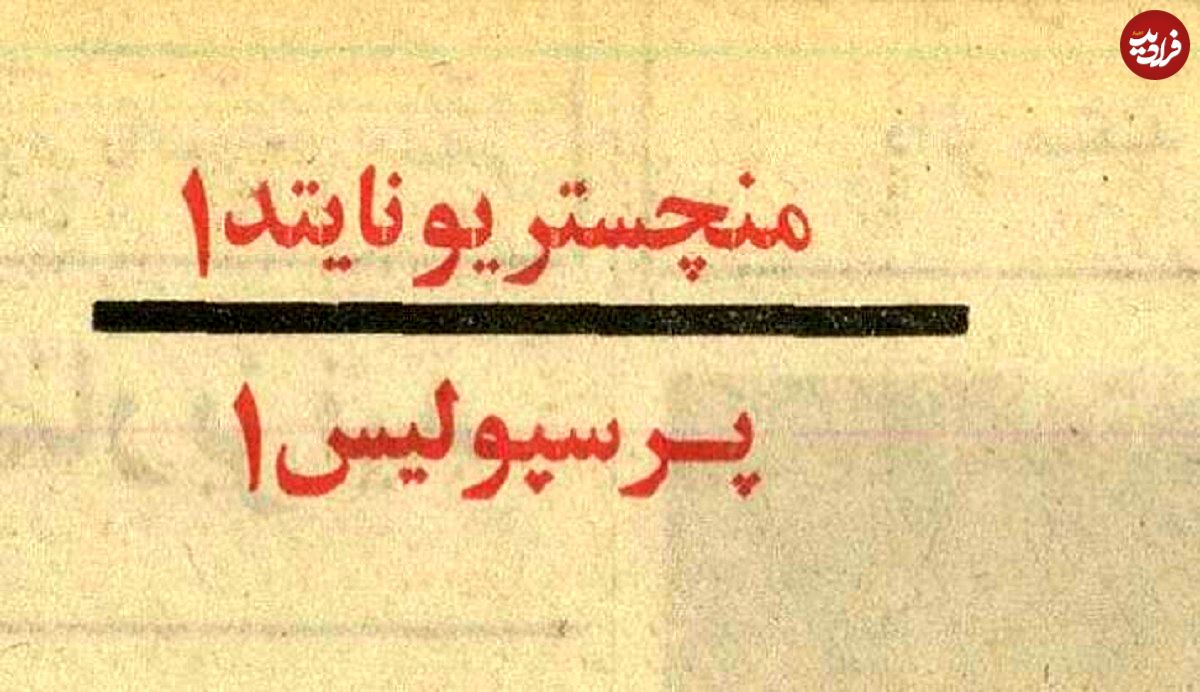 فرادید
منچستر یونایتد ۱
پرسپولیس ۱